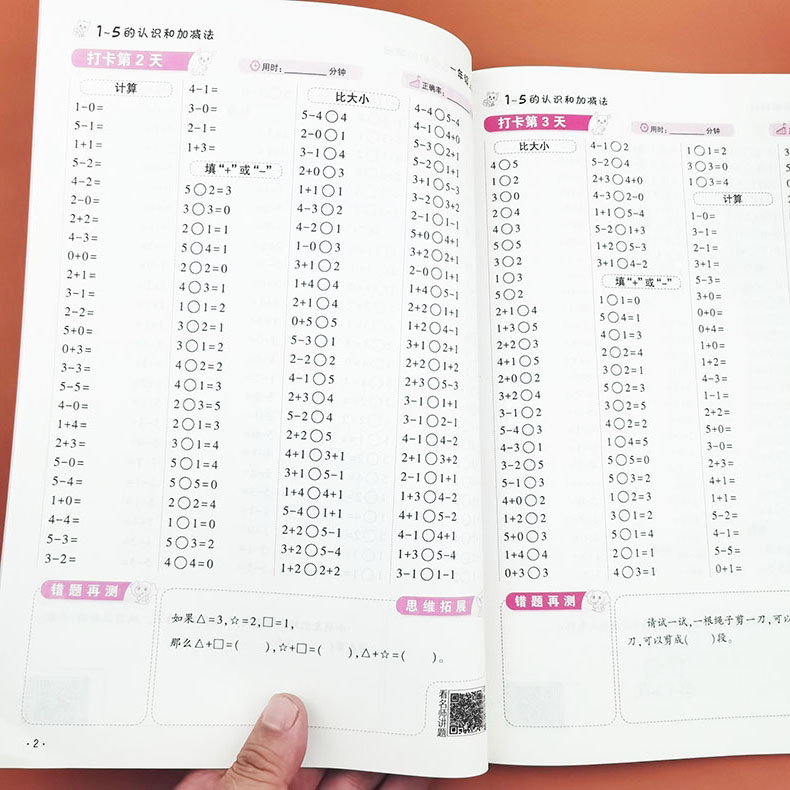 1~5的认识和加减法
打卡第2天
用时:______分钟
一年级
正确率:
计算
1-0=
5-1=
1+1=
5-2=
4-2=
2-0=
2+2=
4-3=
0+0=
2+1=
3-1=
2-2=
5+0=
0+3=
3-3=
5-5=
4-0=
1+4=
2+3=
5-0=
5-4=
1+0=
4-4=
5-3=
3-2=
4-1=
3-0=
2-1=
1+3=
填“+”或“-”
5○2=3
3○3=0
2○1=1
5○4=1
2○2=0
4○3=1
1○1=2
3○2=1
3○1=2
4○2=2
4○1=3
2○3=5
2○1=3
3○1=4
5○1=4
5○5=0
2○2=4
1○1=0
5○3=2
4○4=0
比大小
5-4○4
2-0○1
3-1○4
2+0○3
1+1○1
4-3○2
4-2○1
1-0○3
3+1○2
1+4○4
2+1○4
0+5○5
5-3○1
2-2○2
4-1○5
2+3○4
5-2○4
2+2○5
4+1○3+1
3+1○5-1
1+4○4+1
5-4○1+1
2+2○5-1
3+2○5-4
1+2○2+2
4-4○5-4
4-1○4+0
5-3○2+1
5-2○1+1
3+1○5-3
3-2○3+2
2-1○1-1
5+0○4+1
3+2○2+1
2-0○1+1
1+4○5-1
2+2○1+1
1+2○4-1
3+1○2+1
2+2○1+2
2+3○5-1
3-1○1+1
2-1○5-2
4-1○4-2
2+1○3+2
2-1○1-1
1+3○4-2
4-1○4+1
1+3○5-4
3-1○1-1
错题再测
思维拓展
如果△=3,☆=2,□=1,
那么△+□=( ),☆+□=( ),△+☆=( )。
看名师讲题
·2·
1~5的认识和加减法
打卡第3天
用时:______分钟
比大小
4○5
1○2
3○0
2○4
4○3
5○5
3○2
1○3
5○2
2+1○4
1+3○5
2+2○3
4+1○5
2+0○3
3+2○4
3-1○2
5-4○3
4-3○1
3-2○5
5-1○3
4+0○2
1+2○2
5+0○3
1+4○4
0+3○3
4-1○2
5-2○4
2+3○4+0
4-3○2-0
1+1○5-4
5-2○1+3
1+2○5-3
3+1○4-2
填“+”或“-”
1○1=0
5○4=1
4○1=3
2○2=4
3○1=2
5○3=2
3○2=5
4○2=2
1○4=5
5○5=0
5○3=2
1○2=3
3○1=2
5○1=4
2○1=1
4○3=1
1○1=2
3○3=0
1○3=4
计算
1-0=
3-1=
2-1=
3+1=
5-3=
3+0=
0+0=
0+4=
1+0=
1+2=
4-3=
1-1=
2+2=
5+0=
3-0=
2+3=
4+1=
1+1=
5-2=
4-1=
5-5=
0+2=
错题再测
请试一试,一根绳子剪一刀,可以
刀,可以剪成( )段。